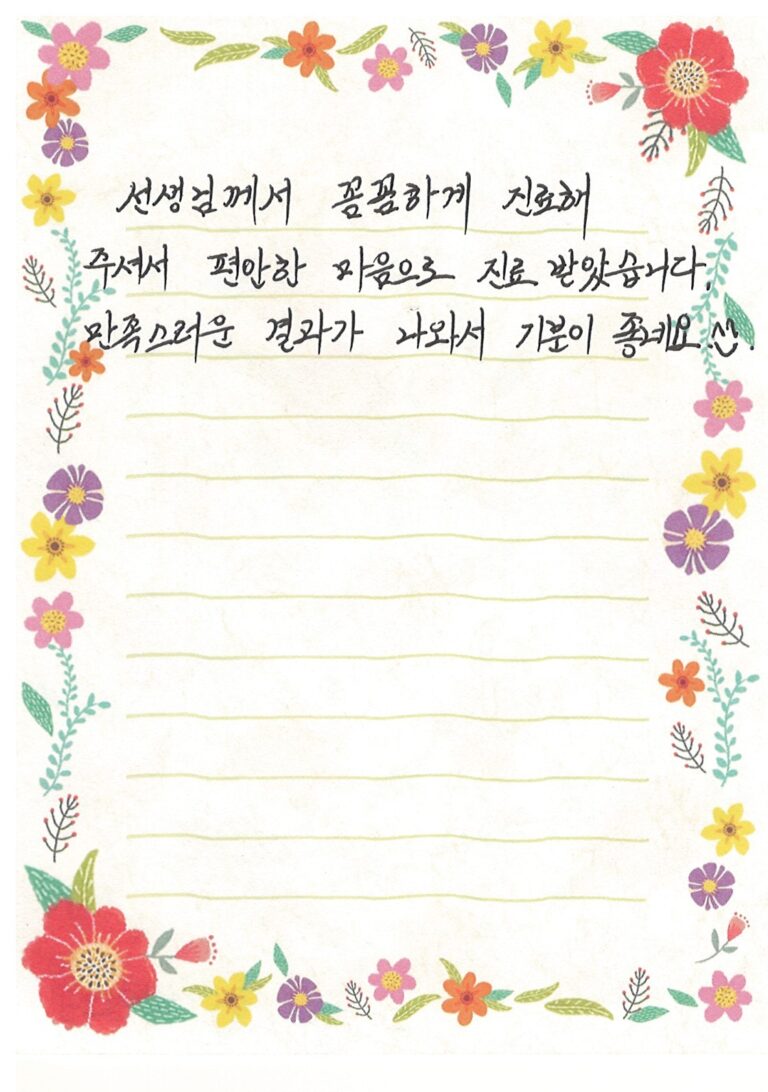 선생님께서 꼼꼼하게 진료해
주셔서 편안한 마음으로 진료 받았습니다.
만족스러운 결과가 나와서 기분이 좋네요.^^.